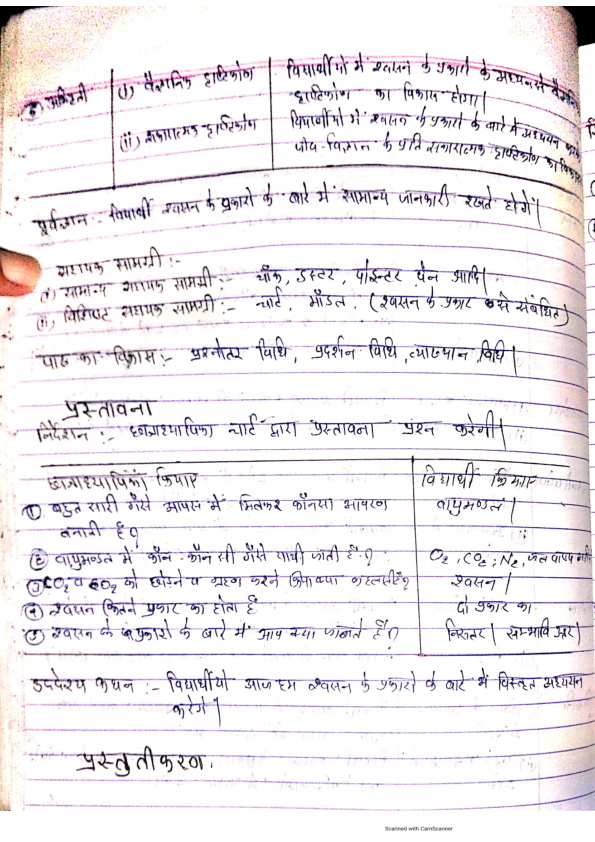 (i) वैज्ञानिक दृष्टिकोण
विद्यार्थीयों में श्वसन के प्रकारो के अध्ययन से
दृष्टिकोण का विकास होगा|
(ii) सकारात्मक दृष्टिकोण
विद्यार्थीयों में श्वसन के प्रकारो के बारे में अध्ययन
जीव-विज्ञान के प्रति सकारात्मक दृष्टिकोण का विकास
पूर्वज्ञान - विद्यार्थी श्वसन के प्रकारो के बारे में सामान्य जानकारी रखते होंगे|
सहायक सामग्री :-
(i) सामान्य सहायक सामग्री :- चॉक, डस्टर, पॉइन्टर पेन आदि|
(ii) विशिष्ट सहायक सामग्री :- चार्ट, मॉडल, (श्वसन के प्रकार से संबंधित)
पाठ का विकास :- प्रश्नोतर विधि, प्रदर्शन विधि, व्याख्यान विधि|
प्रस्तावना
निर्देशन :- छात्राध्यापिका चार्ट द्वारा प्रस्तावना प्रश्न करेगी|
छात्राध्यापिका क्रियाए
विद्यार्थी क्रियाए
① बहुत सारी गैसे आपस में मिलकर कौनसा आवरण
बनाती है?
वायुमण्डल|
② वायुमण्डल में कौन-कौन सी गैसे पायी जाती है?
O₂, CO₂, N₂, जल वाष्प
③ CO₂ व O₂ को छोड़ने व ग्रहण करने क्रिया क्या कहलाती है?
श्वसन|
④ श्वसन कितने प्रकार का होता है
दो प्रकार का
⑤ श्वसन के प्रकारो के बारे में आप क्या जानते है?
निरुतर| (सम्भावि उत्तर)
उददेश्य कथन :- विद्यार्थीयो आज हम श्वसन के प्रकारो के बारे में विस्तृत अध्ययन
करेगे|
प्रस्तुतीकरण.
Scanned with CamScanner